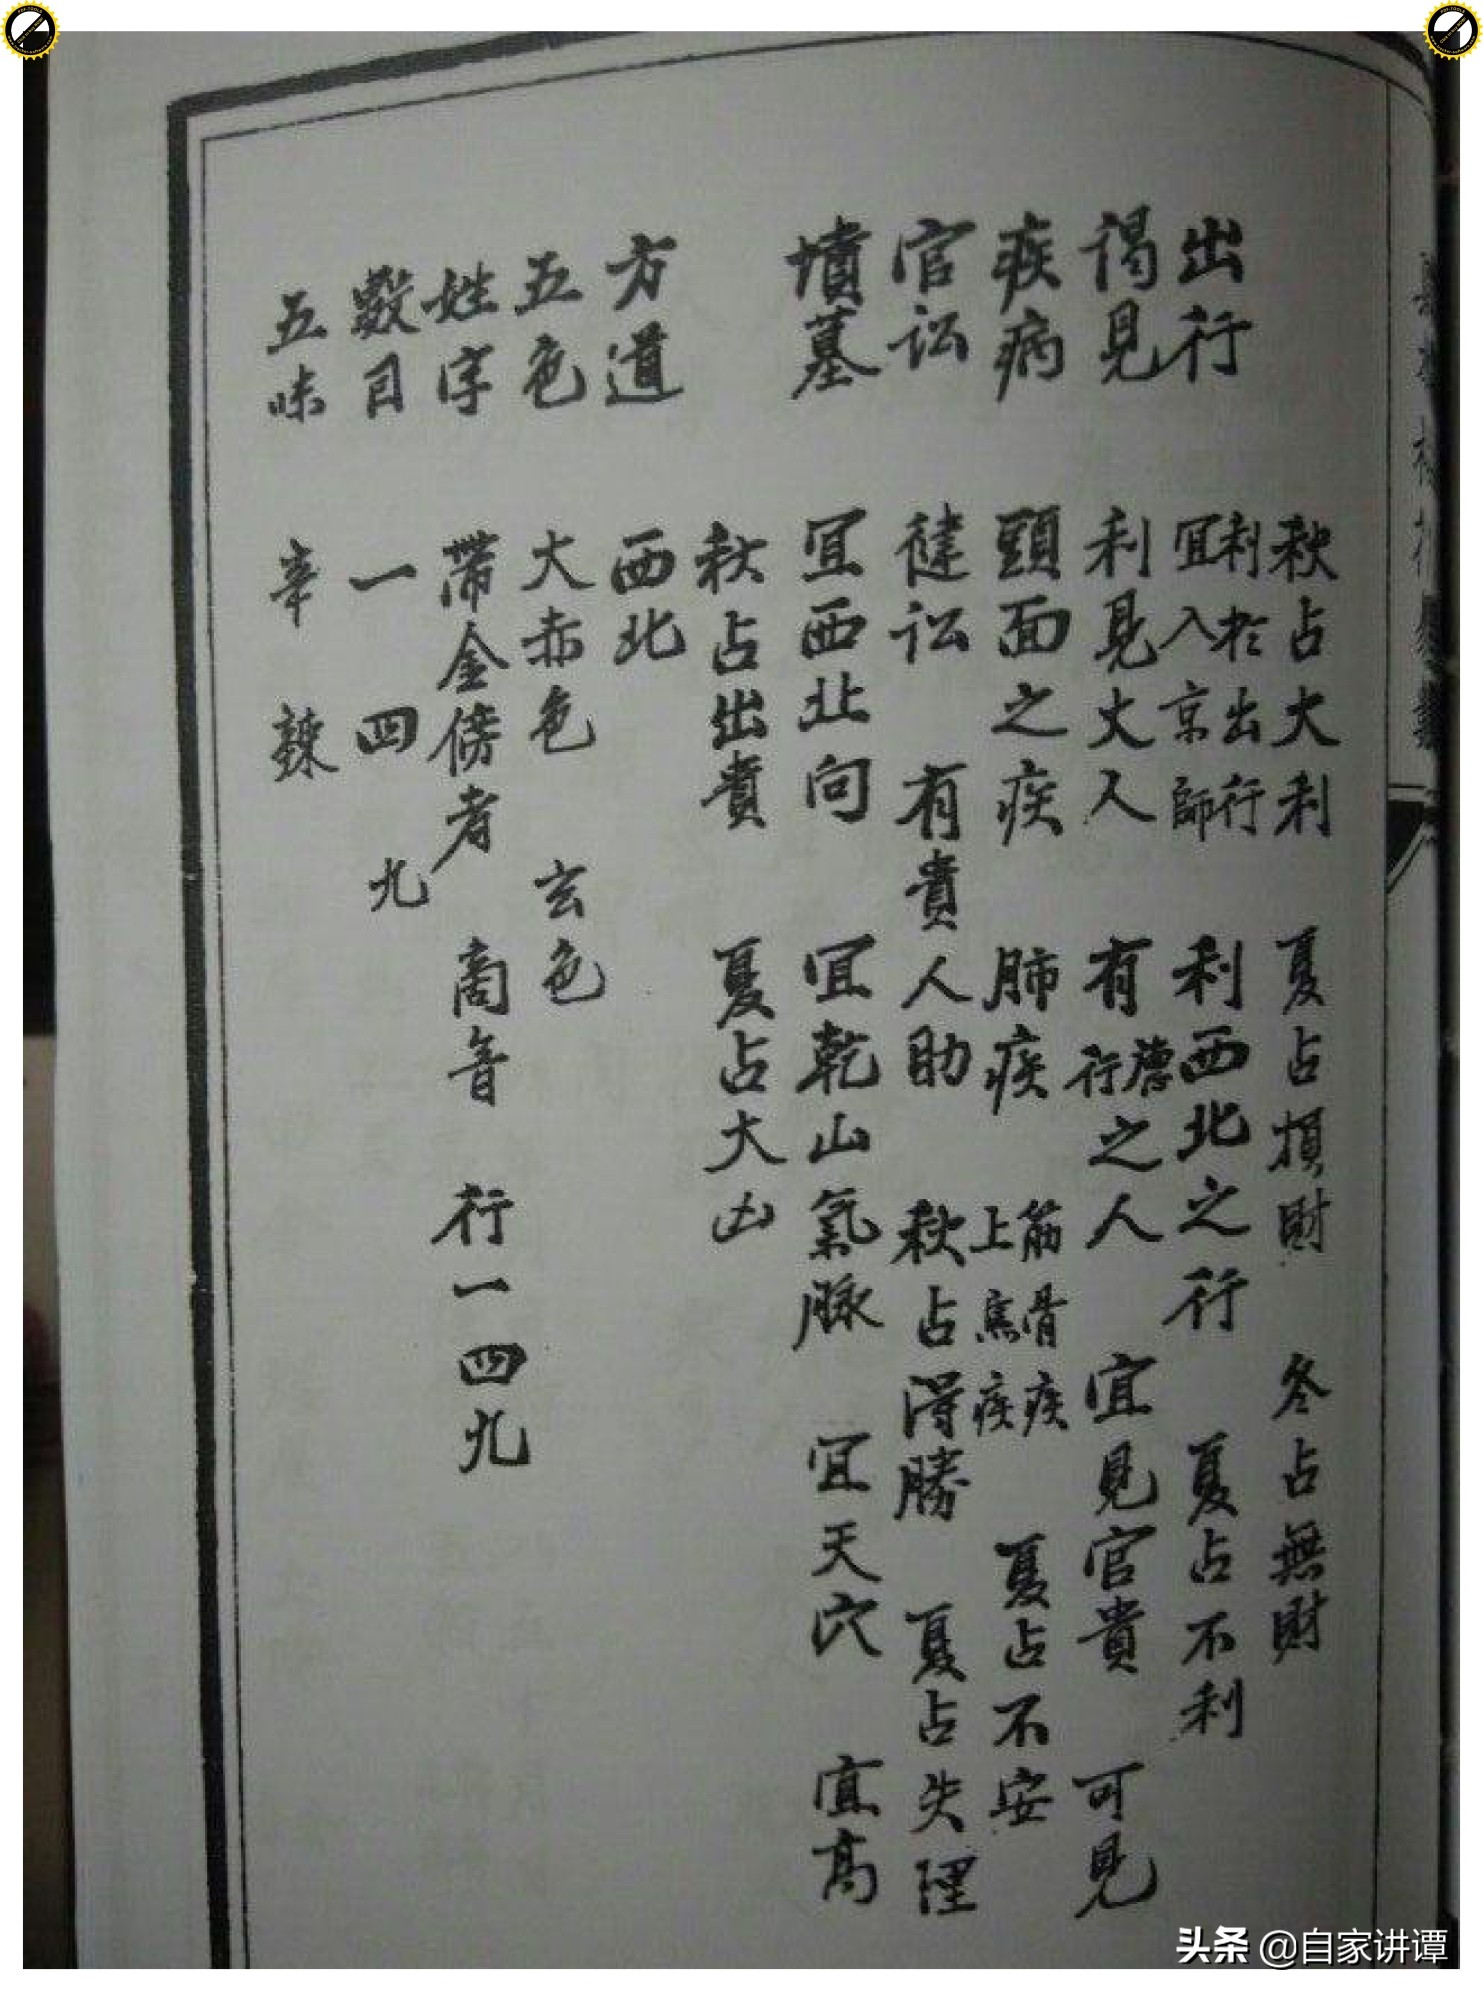 秋占大利 夏占損財 冬占無財
出行 利於出行 宜入京師 利西北之行 夏占不利
謁見 利見大人 有德行之人 宜見官貴 可見
疾病 頭面之疾 肺疾 筋骨疾 上焦疾 夏占不安
官訟 健訟 有貴人助 秋占得勝 夏占失理
墳墓 宜西北向 宜乾山氣脉 宜天穴 宜高
秋占出貴 夏占大凶
方道 西北
五色 大赤色 玄色
姓字 帶金傍者 商音 行一四九
數目 一 四 九
五味 辛 辣
头条 @自家讲谭